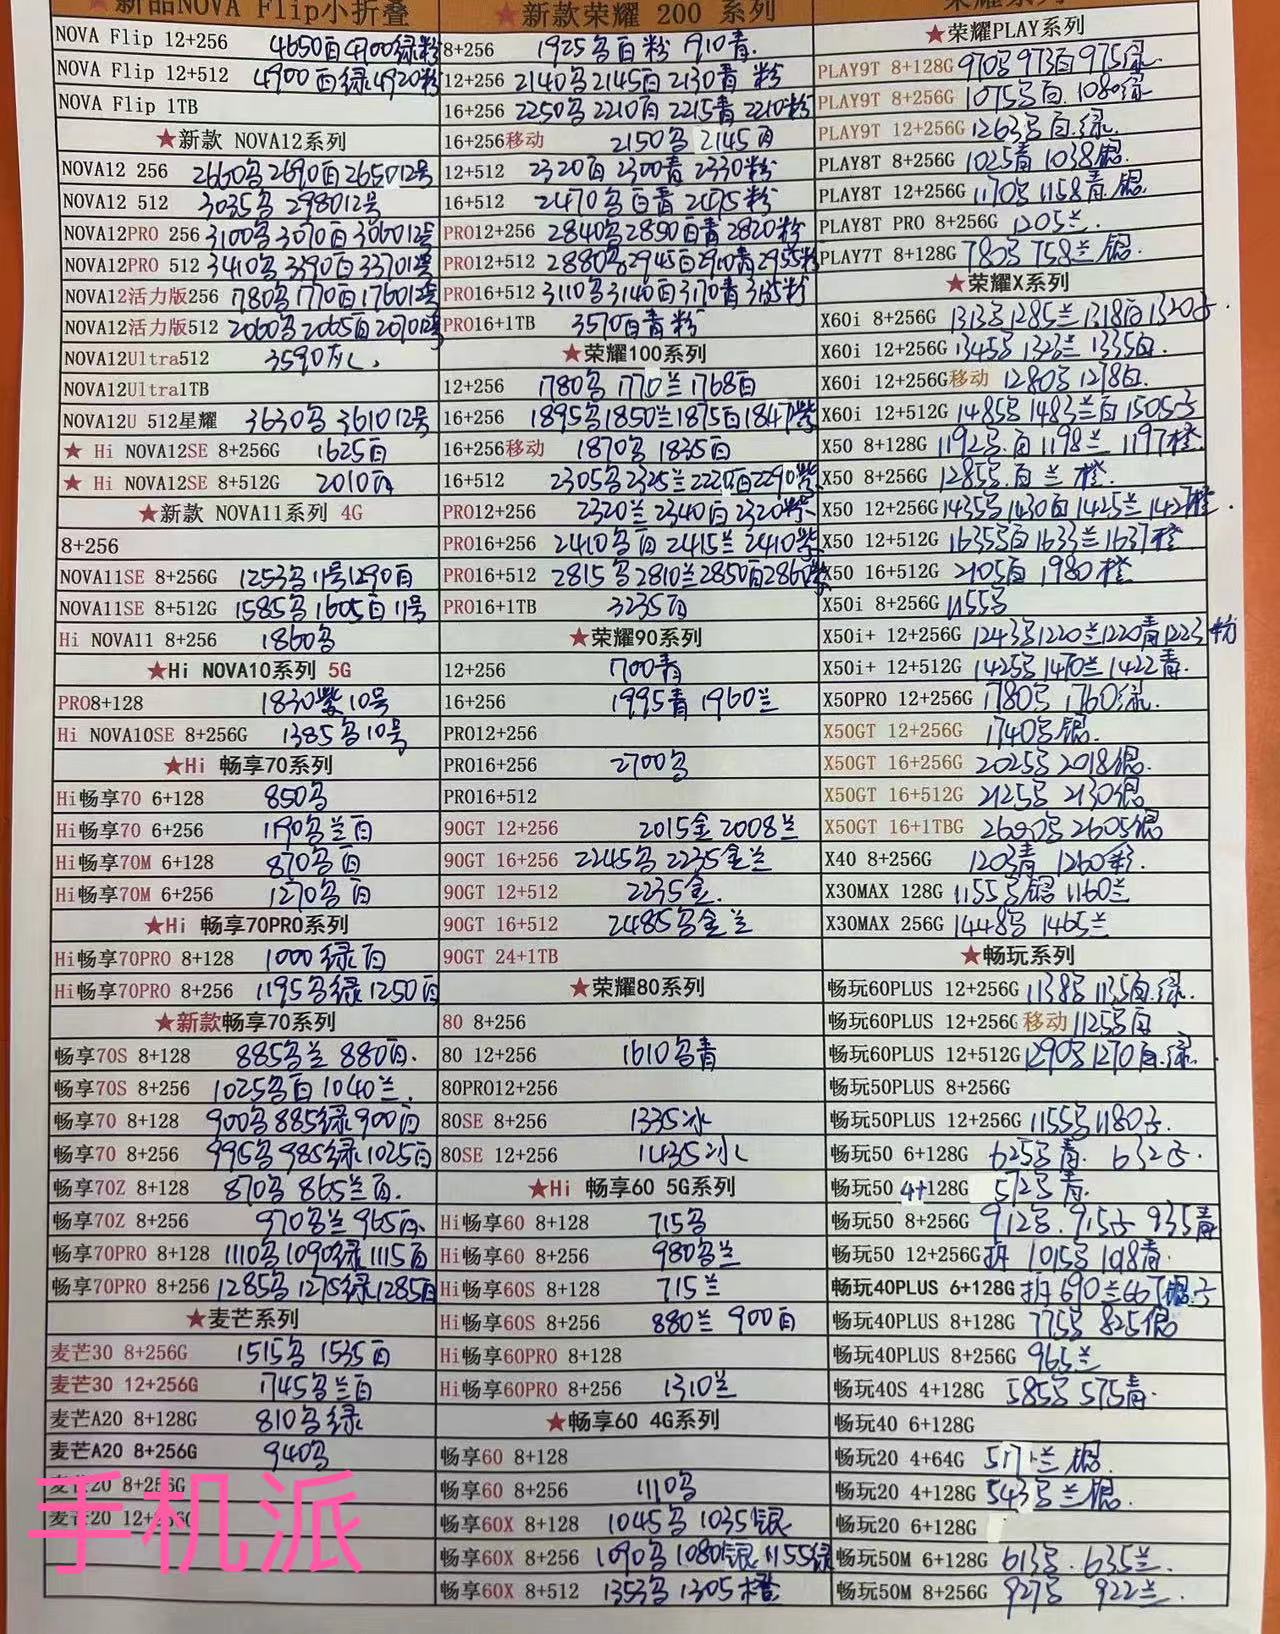 ★新品NOVA Flip小折叠
NOVA Flip 12+256 4650百4700绿粉
NOVA Flip 12+512 4900百绿4920粉
NOVA Flip 1TB
★新款 NOVA12系列
NOVA12 256 2660名2690百265012号
NOVA12 512 3035名 298012号
NOVA12PRO 256 3100名3070百306012号
NOVA12PRO 512 3410名3390百337012号
NOVA12活力版256 1780名1770百176012号
NOVA12活力版512 2060名2065百207012号
NOVA12Ultra512 3590灰
NOVA12Ultra1TB
NOVA12U 512星耀 3630名361012号
★ Hi NOVA12SE 8+256G 1625百
★ Hi NOVA12SE 8+512G 2010百
★新款 NOVA11系列 4G
8+256
NOVA11SE 8+256G 1253名11号1290百
NOVA11SE 8+512G 1585名1605百11号
Hi NOVA11 8+256 1860名
★Hi NOVA10系列 5G
PRO8+128 1830紫10号
Hi NOVA10SE 8+256G 1385名10号
★Hi 畅享70系列
Hi畅享70 6+128 850名
Hi畅享70 6+256 1190名兰百
Hi畅享70M 6+128 870名百
Hi畅享70M 6+256 1270名百
★Hi 畅享70PRO系列
Hi畅享70PRO 8+128 1000绿百
Hi畅享70PRO 8+256 1195名绿1250百
★新款畅享70系列
畅享70S 8+128 885名兰 880百.
畅享70S 8+256 1025名百1040兰.
畅享70 8+128 900名885绿900百
畅享70 8+256 995名985绿1025百
畅享70Z 8+128 870名 865兰百.
畅享70Z 8+256 970名兰965百.
畅享70PRO 8+128 1110名1090绿1115百
畅享70PRO 8+256 1285名1275绿1285百
★麦芒系列
麦芒30 8+256G 1515名1535百
麦芒30 12+256G 1745名兰百
麦芒A20 8+128G 810名绿
麦芒A20 8+256G 940名
麦芒20 8+256G
麦芒20 12+256G
手机派
★新款荣耀 200 系列
8+256 1925名百粉 1910青.
12+256 2140名2145百2130青 粉
16+256 2250名2210百2215青2210粉
16+256移动 2150名2145百
12+512 2320百2300青2330粉
16+512 2470名百青2475粉
PRO12+256 2840名2850百青2820粉
PRO12+512 2880名2945百2910青2955粉
PRO16+512 3110名3140百3170青3135粉
PRO16+1TB 3570百青粉
★荣耀100系列
12+256 1780名1770兰1768百
16+256 1895名1850兰1875百1847紫
16+256移动 1870名1835百
16+512 2305名2325兰2220百2290紫
PRO12+256 2320兰2340百2320紫
PRO16+256 2410名百2415兰2410紫
PRO16+512 2815名2810兰2850百2860紫
PRO16+1TB 3235百
★荣耀90系列
12+256 1700青
16+256 1995青1960兰
PRO12+256
PRO16+256 2700名
PRO16+512
90GT 12+256 2015金2008兰
90GT 16+256 2245名2235金兰
90GT 12+512 2235金.
90GT 16+512 2485名金兰
90GT 24+1TB
★荣耀80系列
80 8+256
80 12+256 1610名青
80PRO12+256
80SE 8+256 1335冰
80SE 12+256 1435冰
★Hi 畅享60 5G系列
Hi畅享60 8+128 715名
Hi畅享60 8+256 980名兰
Hi畅享60S 8+128 715兰
Hi畅享60S 8+256 880兰 900百
Hi畅享60PRO 8+128
Hi畅享60PRO 8+256 1310兰
★畅享60 4G系列
畅享60 8+128
畅享60 8+256 1110名
畅享60X 8+128 1045名1035银
畅享60X 8+256 1090名1080银1155绿
畅享60X 8+512 1353名1305橙
荣耀系列
★荣耀PLAY系列
PLAY9T 8+128G 970名973百975绿.
PLAY9T 8+256G 1075名百.1080绿
PLAY9T 12+256G 1263名百.绿.
PLAY8T 8+256G 1025青1038银.
PLAY8T 12+256G 1170名1158青.银
PLAY8T PRO 8+256G 1205兰.
PLAY7T 8+128G 780名758兰银.
★荣耀X系列
X60i 8+256G 1313名1285兰1318百1320子.
X60i 12+256G 1345名1323兰1335百.
X60i 12+256G移动 1280名1278百.
X60i 12+512G 1485名1483兰百1505子
X50 8+128G 1192名.百1198兰 1197橙.
X50 8+256G 1285名.百 兰 橙.
X50 12+256G 1435名1430百1425兰1427橙.
X50 12+512G 1635名百1633兰1637橙.
X50 16+512G 2105百1980橙
X50i 8+256G 1155名
X50i+ 12+256G 1243名1220兰1220青1223粉
X50i+ 12+512G 1425名1470兰1422青.
X50PRO 12+256G 1780名1760绿.
X50GT 12+256G 1740名银.
X50GT 16+256G 2025名2018银.
X50GT 16+512G 2125名2130银
X50GT 16+1TBG 2605银
X40 8+256G 1203青 1260彩.
X30MAX 128G 1155名银1160兰
X30MAX 256G 1448名1465兰
★畅玩系列
畅玩60PLUS 12+256G 1138名1135百.绿.
畅玩60PLUS 12+256G 移动 1125名百
畅玩60PLUS 12+512G 1290名1270百.绿.
畅玩50PLUS 8+256G
畅玩50PLUS 12+256G 1155名1180子.
畅玩50 6+128G 625名青. 632子.
畅玩50 4+128G 572名青.
畅玩50 8+256G 912名.915子 935青
畅玩50 12+256G 拆 1015名1018青.
畅玩40PLUS 6+128G 拆690兰667银.子
畅玩40PLUS 8+128G 775名 825银
畅玩40PLUS 8+256G 965兰
畅玩40S 4+128G 585名575青.
畅玩40 6+128G
畅玩20 4+64G 兰 银.
畅玩20 4+128G 543名兰银.
畅玩20 6+128G
畅玩50M 6+128G 613名.635兰.
畅玩50M 8+256G 927名 922兰.